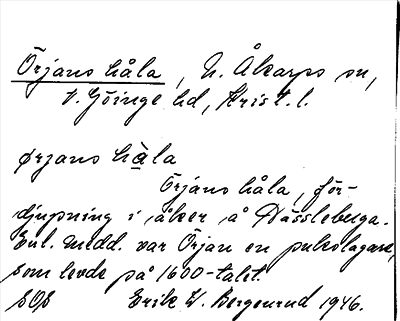 Örjans håla, N. Åkarps sn,
V. Göinge hd, Krist. l.
ørjans håla
Örjans håla, för-
djupning i åker å Hässleberga.
Enl. medd. var Örjan en
som levde på 1600-talet.
Erik W. Bergenrud 1946.